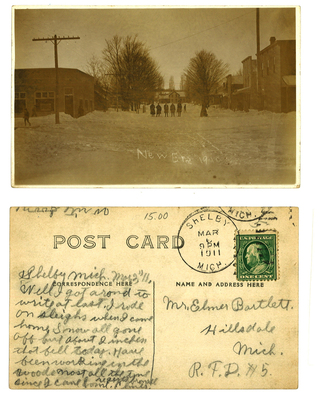 New Era Mich.
15.00
POST CARD
CORRESPONDENCE HERE
NAME AND ADDRESS HERE
SHELBY
MAR
8PM
1911
MICH.
U.S. POSTAGE
ONE CENT
Shelby Mich.
Well I got around to
write at last. I rode
on sleighs when I come
home, Snow all gone
off but about 2 inches
that fell today. Have
been working in the
woods most all the time
since I came home.
Mr. Elmer Bartlett.
Hillsdale
Mich.
R.F.D. #5.